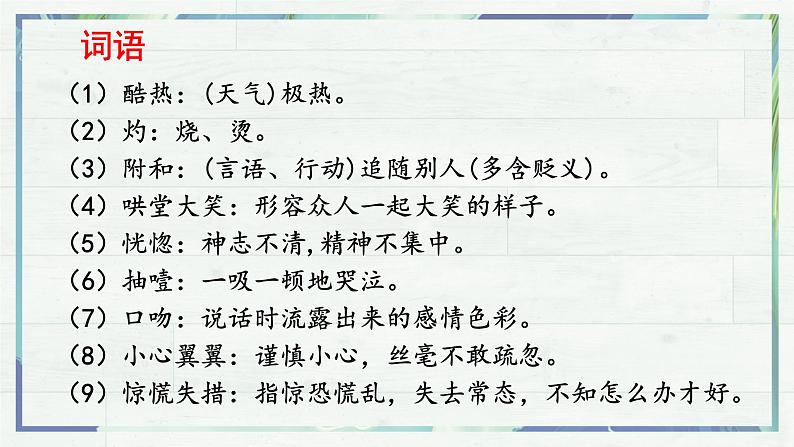 词语
（1）酷热：(天气)极热。
（2）灼：烧、烫。
（3）附和：(言语、行动)追随别人(多含贬义)。
（4）哄堂大笑：形容众人一起大笑的样子。
（5）恍惚：神志不清,精神不集中。
（6）抽噎：一吸一顿地哭泣。
（7）口吻：说话时流露出来的感情色彩。
（8）小心翼翼：谨慎小心，丝毫不敢疏忽。
（9）惊慌失措：指惊恐慌乱，失去常态，不知怎么办才好。